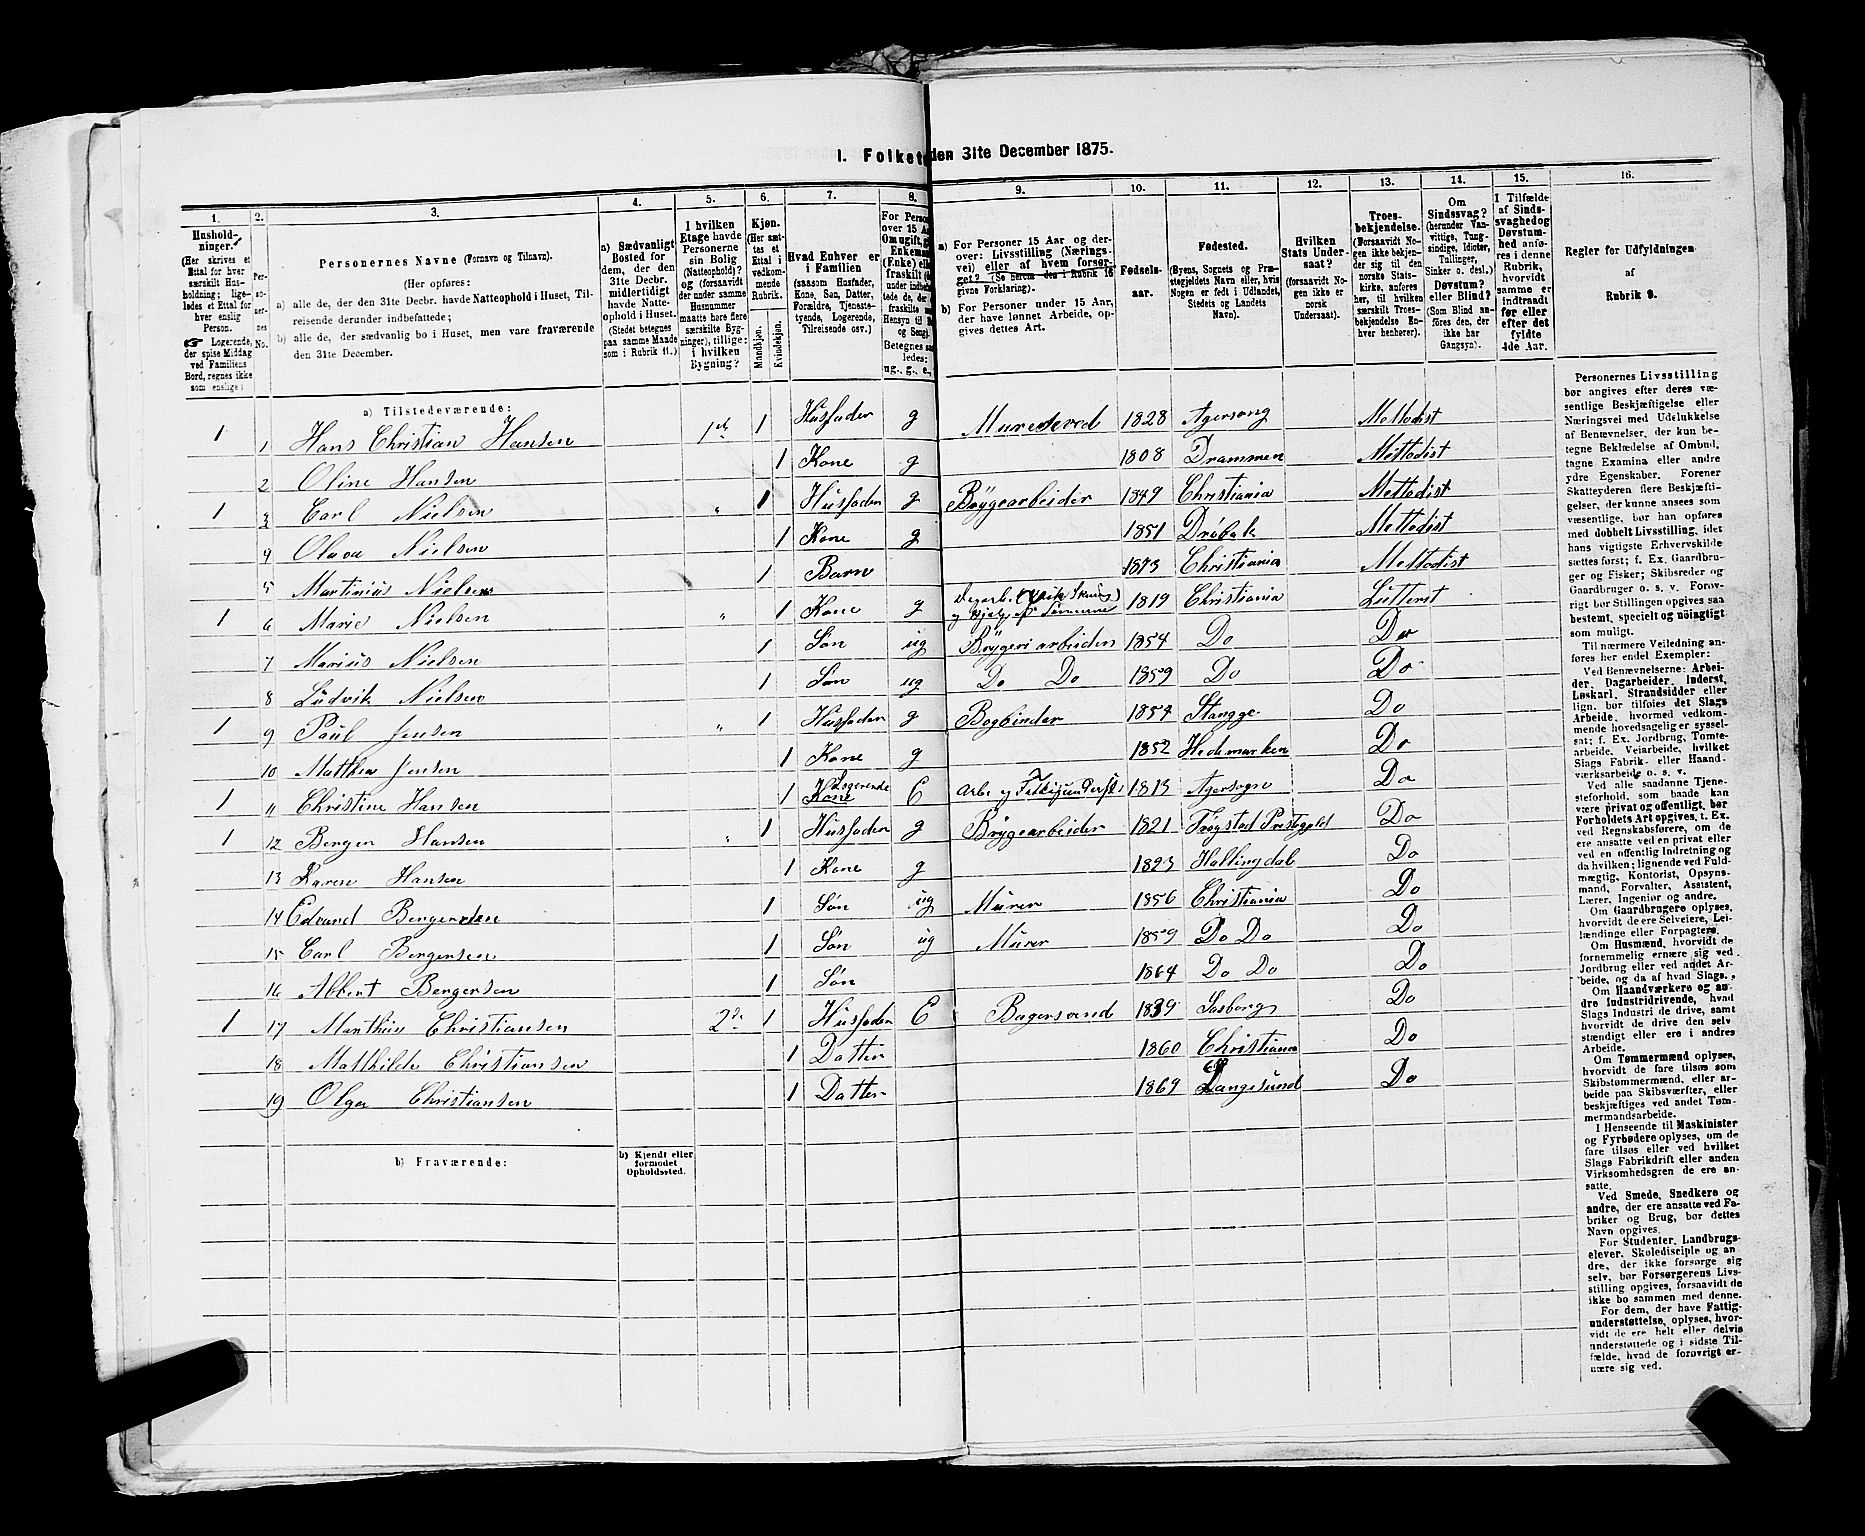 I. Folket den 31te December 1875.
1. 2. 3. 4. 5. 6. 7. 8. 9. 10. 11. 12. 13. 14. 15. 16.
Hushold-
ninger.
(Her skrives et
Ettal for hver
særskilt Hus-
holdning; lige-
ledes et Ettal for
hver enslig
Person.
☞ Logerende,
der spise Middag
ved Familiens
Bord, regnes ikke
som enslige).
Per-
so-
ner-
nes
No.
Personernes Navne (Fornavn og Tilnavn).
(Her opføres:
a) alle de, der den 31te Decbr. havde Natteophold i Huset, Til-
reisende derunder indbefattede;
b) alle de, der sædvanlig bo i Huset, men vare fraværende
den 31te December.
a) Sædvanligt
Bosted for
dem, der den
31te Decbr.
midlertidigt
havde Natte-
ophold i Huset.
(Stedet betegnes
paa samme Maade
som i Rubrik 11.)
I hvilken
Etage havde
Personerne
sin Bolig
(Natteophold)?
og (forsaavidt
der under samme
Husnummer
maatte høre flere
særskilte Byg-
ninger), tillige:
i hvilken
Bygning?
Kjøn.
(Her sæt-
tes et
Ettal i
vedkom-
mende
Rubrik.
Mandkjøn.
Kvindekjøn.
Hvad Enhver er
i Familien
(saasom Husfader,
Kone, Søn, Datter,
Forældre, Tjeneste-
tyende, Logerende,
Tilreisende osv.)
For Perso
over 15 Aa
Om ugift, g
Enkeman
(Enke) elle
fraskilt
under indbe
tede de, der
fraskilte m
Hensyn til B
og Seng
Betegnes sa
ledes:
ug., g., e.,
a) For Personer 15 Aar og der-
over: Livsstilling (Nærings-
vei) eller af hvem forsør-
get? (Se herom den i Rubrik 16
givne Forklaring).
b) For Personer under 15 Aar,
der have lønnet Arbeide, op-
gives dettes Art.
Fødsels-
aar.
Fødested.
(Byens, Sognets og Præ-
stegjeldets Navn eller, hvis
Nogen er født i Udlandet,
Stedets og Landets
Navn).
Hvilken
Stats Under-
saat?
(forsaavidt No-
gen ikke er
norsk
Undersaat).
Troes-
bekjendelse.
(Forsaavidt No-
gen ikke bekjen-
der sig til den
norske Stats-
kirke, anføres
her, til hvilken
særskilt Troes-
bekjendelse En-
hver henhører).
Om
Sindssvag?
(herunder Van-
vittige, Tung-
sindige, Idioter,
Tullinger,
Sinker o. desl.)
Døvstum?
eller Blind?
(Som Blind an-
føres den, der
ikke har
Gangsyn).
I Tilfælde
af Sinds-
svaghed og
Døvstum-
hed anfø-
res i denne
Rubrik,
hvorvidt
samme er
indtraadt
før eller
efter det
fyldte
4de Aar.
Regler for Udfyldningen
af
Rubrik 9.
a) Tilstedeværende:
1 1 Hans Christian Hansen 1 Husfader g 1828 Metodist
2 Oline Hansen 1 Kone g 1808 Drammen Mettodist
1 3 Carl Nielsen " 1 Husfader g Brygearbeider 1849 Christiania Mettodist
4 Olava Nielsen 1 Kone g 1851 Drøbak Mettodist
5 Martinius Nielsen 1 Barn 1873 Christiania Mettodist
1 6 Marie Nielsen " 1 Kone g 1819 Christiania Lutterst
7 Marius Nielsen 1 Søn ug Bryggeriarbeider 1854 Do Do
8 Ludvik Nielsen 1 Søn ug Do Do 1859 Do Do
1 9 Paul Jensen " 1 Husfader g Bogbinder 1854 Stangge Do
10 Matthea Jensen 1 Kone g 1852 Hedemarken Do
1 11 Christine Hansen 1 Logerende Kone E 1813 Agersogn Do
1 12 Berger Hansen " 1 Husfader g Brygearbeider 1821 Trøgstad Prestegjeld Do
13 Karen Hansen 1 Kone g 1823 Hallingdal Do
14 Edvard Bergersen 1 Søn ug Murer 1856 Christiania Do
15 Carl Bergersen 1 Søn ug Murer 1859 Do Do Do
16 Albert Bergersen 1 Søn 1864 Do Do Do
1 17 Christiansen 1 Husfader E Bagersvend 1839 Do
18 Mathilde Christiansen 1 Datter 1860 Christiania Do
19 Olga Christiansen 1 Datter 1869 Langesund Do
b) Fraværende:
b) Kjendt eller
formodet
Opholdssted.
Personernes Livsstilling
bør angives efter deres væ-
sentlige Beskjæftigelse eller
Næringsvei med Udelukkelse
af Benævnelser, der kun be-
tegne Beklædelse af Ombud,
tagne Examina eller andre
ydre Egenskaber. Forener
Skatteyderen flere Beskjæfti-
gelser, der kunne ansees som
væsentlige, bør han opføres
med dobbelt Livsstilling, idet
hans vigtigste Erhvervskilde
sættes først; f. Ex. Gaardbru-
ger og Fisker; Skibsreder og
Gaardbruger o. s. v. Forøv-
rigt bør Stillingen opgives saa
bestemt, specielt og nöiagtigt
som muligt.
Til nærmere Veiledning an-
føres her endel Exempler:
Ved Benævnelserne: Arbei-
der, Dagarbeider, Inderst,
Løskarl, Strandsidder eller
lign. bør tilføies det Slags
Arbeide, hvormed vedkom-
mende hovedsagelig er syssel-
sat; f. Ex. Jordbrug, Tomte-
arbeide, Veiarbeide, hvilket
Slags Fabrik- eller Haand-
værksarbeide o. s. v.
Ved alle saadanne Tjene-
steforhold, som baade kan
være privat og offentligt, bør
Forholdets Art opgives, t. Ex.
ved Regnskabsførere, om de
ere ansatte ved en privat eller
ved en offentlig Indretning og
da hvilken; lignende ved Fuld-
mægtig, Kontorist, Opsyns-
mand, Forvalter, Assistent,
Lærer, Ingeniør og andre.
Om Gaardbrugere oplyses,
hvorvidt de ere Selveiere, Lei-
lændinge eller Forpagtere.
Om Husmænd, hvorvidt de
fornemmelig ernære sig ved
Jordbrug eller ved andet Ar-
beide, og da af hvad Slags.
Om Haandværkere og an-
dre Industridrivende, hvad
Slags Industri de drive, samt
hvorvidt de drive den selv-
stændigt eller ere i andres
Arbeide.
Om Tømmermænd oplyses,
hvorvidt de fare tilsøs som
Skibstømmermænd, eller ar-
beide paa Skibsværfter, eller
beskjæftiges ved andet Tøm-
mermandsarbeide.
I Henseende til Maskinister
og Fyrbødere oplyses, om de
fare tilsøs eller ved hvilket
Slags Fabrikdrift eller anden
Virksomhedsgren de ere an-
satte.
Ved Smede, Snedkere og
andre, der ere ansatte ved Fa-
briker og Brug, bør dettes
Navn opgives.
For Studenter, Landbrugs-
elever, Skoledisciple og an-
dre, der ikke forsørge sig
selv, bør Forsørgerens Livs-
stilling opgives, forsaavidt de
ikke bo sammen med denne.
For dem, der have Fattig-
understøttelse, oplyses, hvor-
vidt de ere helt eller delvis
understøttede og i sidste Til-
fælde, hvad de forøvrigt er-
nære sig ved.